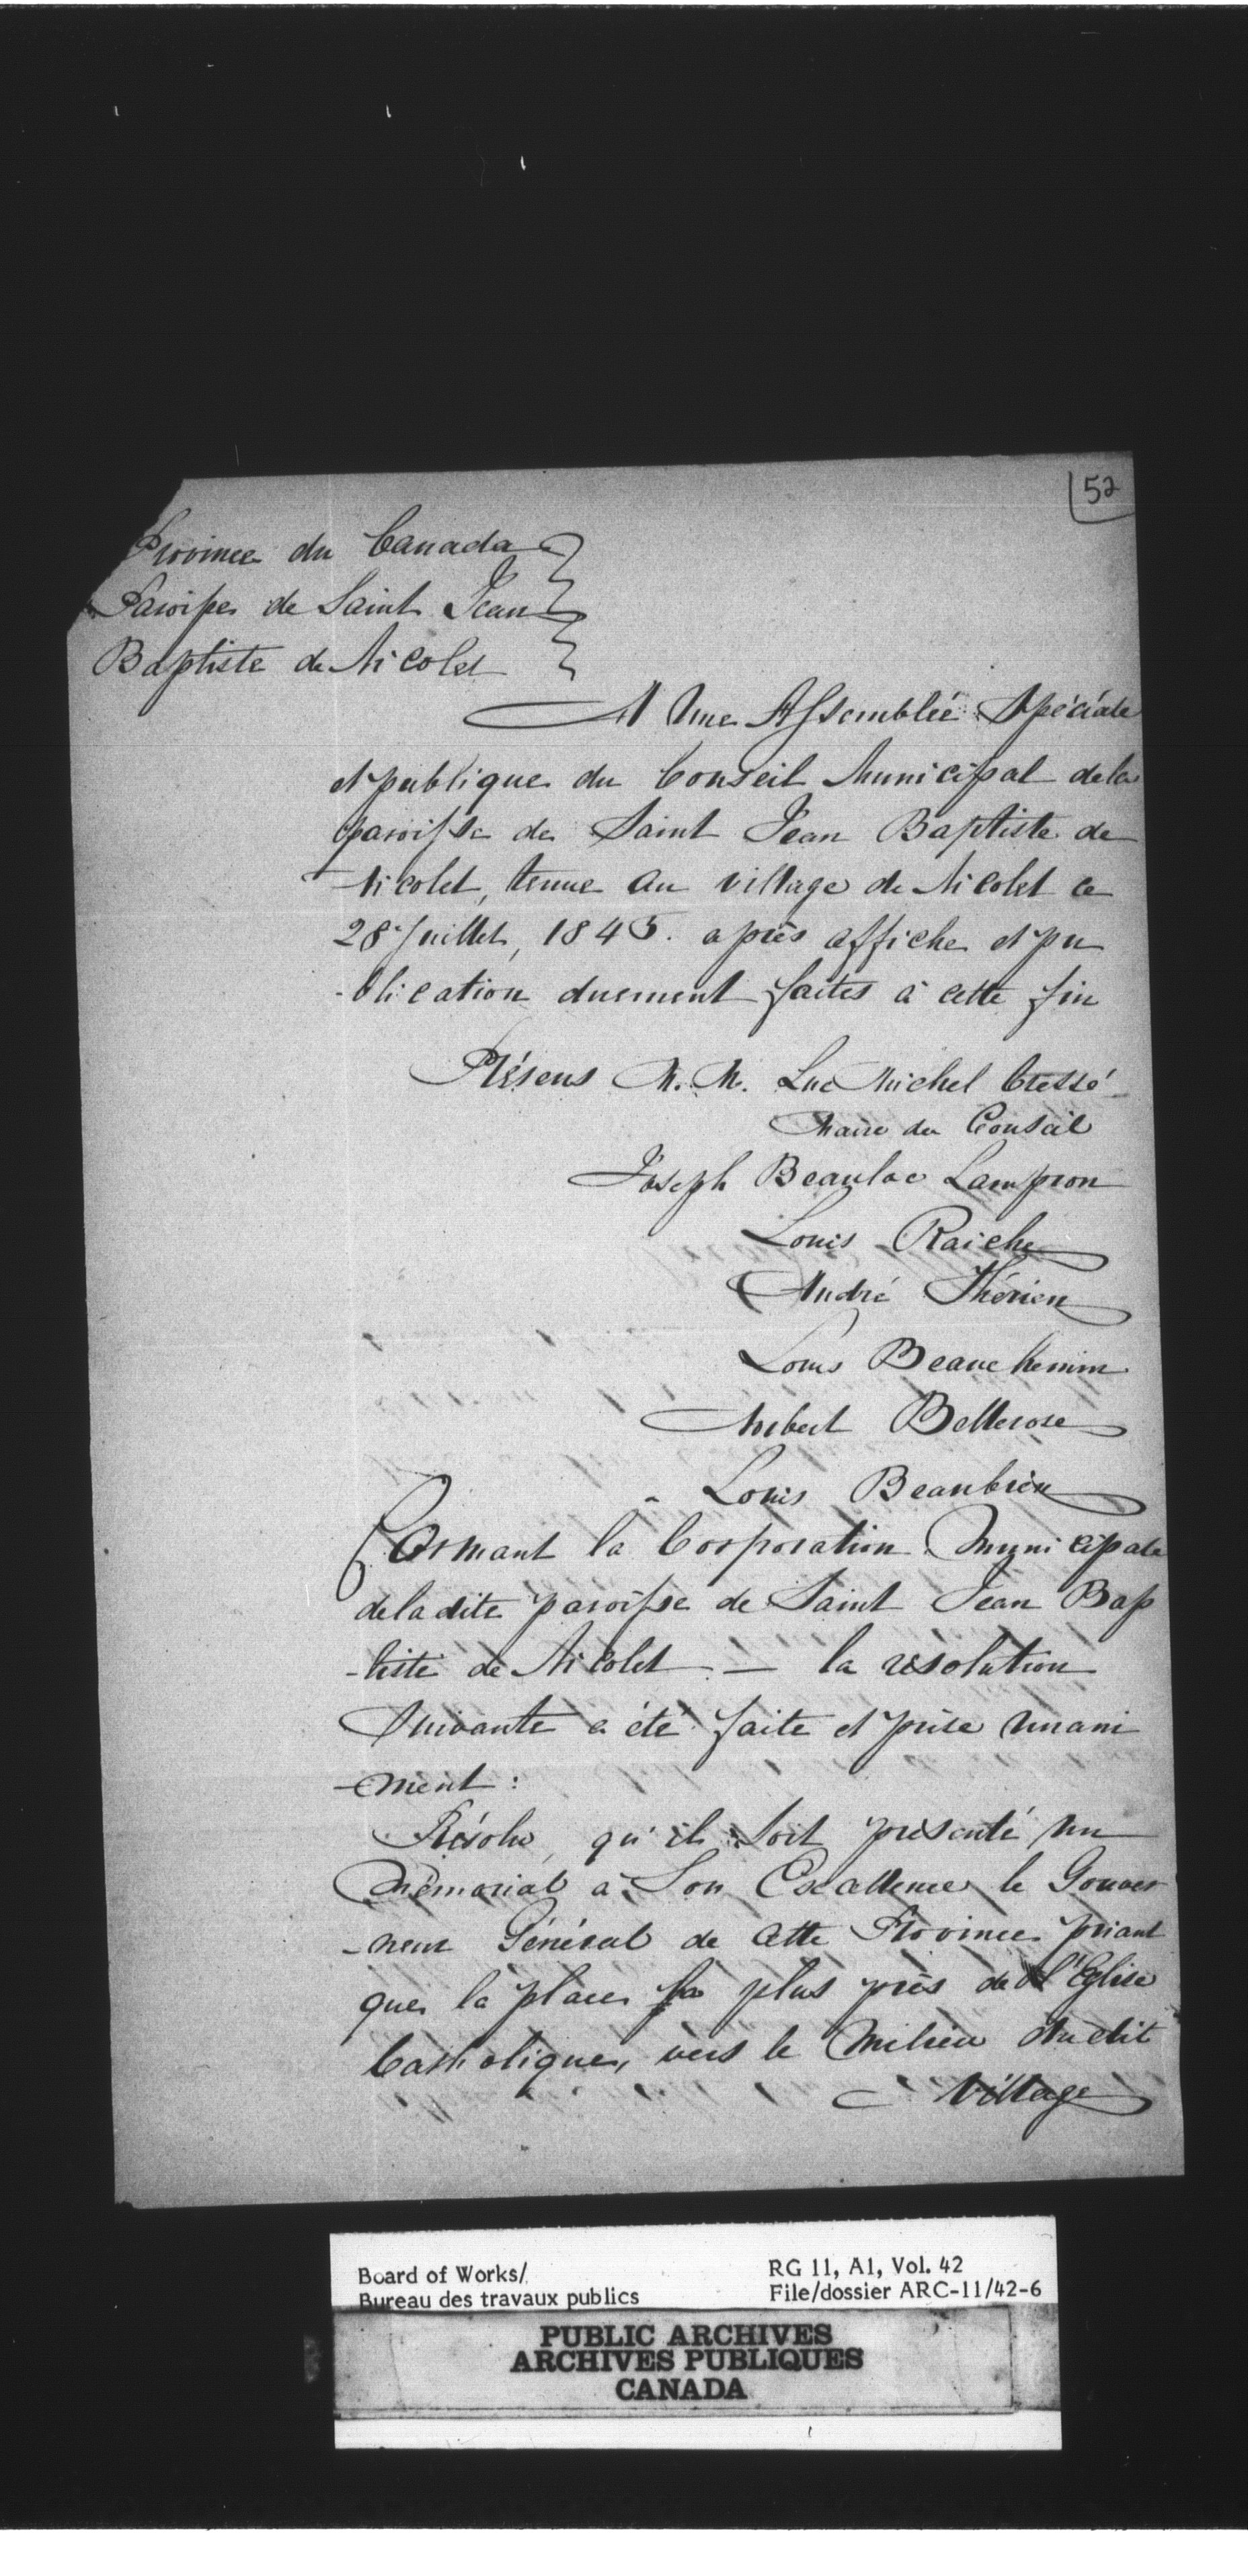 52
Province du Canada
Paroisse de Saint Jean
Baptiste de Nicolet
A Une Assemblée Spéciale
et publique du Conseil Municipal de la
paroisse de Saint Jean Baptiste de
Nicolet, tenue au village de Nicolet ce
28 Juillet, 1845. après affiche et pu
-blication duement faites à cette fin
Présens M. M. Luc Michel Cressé
Maire du Conseil
Joseph Beaulac Lampron
Louis Raiche
André Thérien
Louis Beauchemin
Hubert Bellerose
Louis Beaubien
Formant la Corporation Municipale
de la dite paroisse de Saint Jean Bap
-tiste de Nicolet — la résolution
Suivante a été faite et prise unani
-ment :
Résolu, qu'il soit présenté un
Mémorial à Son Excellence le Gouver
-neur Général de cette Province priant
que la place la plus près de l'Eglise
Catholique, vers le Milieu du dit
Village
Board of Works/
Bureau des travaux publics
RG 11, A1, Vol. 42
File/dossier ARC-11/42-6
PUBLIC ARCHIVES
ARCHIVES PUBLIQUES
CANADA